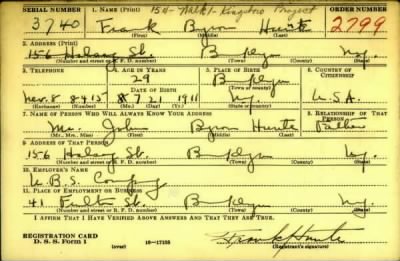 SERIAL NUMBER 1. NAME (Print) ORDER NUMBER
3740 Frank Byron Hunte 2799
(First) (Middle) (Last)
2. ADDRESS (Print)
156 Halsey St. Bklyn N.y.
(Number and street or R. F. D. number) (Town) (County) (State)
3. TELEPHONE 4. AGE IN YEARS 5. PLACE OF BIRTH 6. COUNTRY OF CITIZENSHIP
29 Bklyn
DATE OF BIRTH
8 21 1911 N.y. U.S.A.
(Exchange) (No.) (Mo.) (Day) (Yr.) (State or country)
7. NAME OF PERSON WHO WILL ALWAYS KNOW YOUR ADDRESS 8. RELATIONSHIP OF THAT PERSON
Mr. John Byron Hunte Father
(Mr., Mrs., Miss) (First) (Middle) (Last)
9. ADDRESS OF THAT PERSON
156 Halsey St. Bklyn N.y.
(Number and street or R. F. D. number) (Town) (County) (State)
10. EMPLOYER'S NAME
11. PLACE OF EMPLOYMENT OR BUSINESS
41 Fulton St. Bklyn N.y.
(Number and street or R. F. D. number) (Town) (County) (State)
I AFFIRM THAT I HAVE VERIFIED ABOVE ANSWERS AND THAT THEY ARE TRUE.
REGISTRATION CARD
D. S. S. Form 1 (over) 16-17105 (Registrant's signature)
Frank Hunte